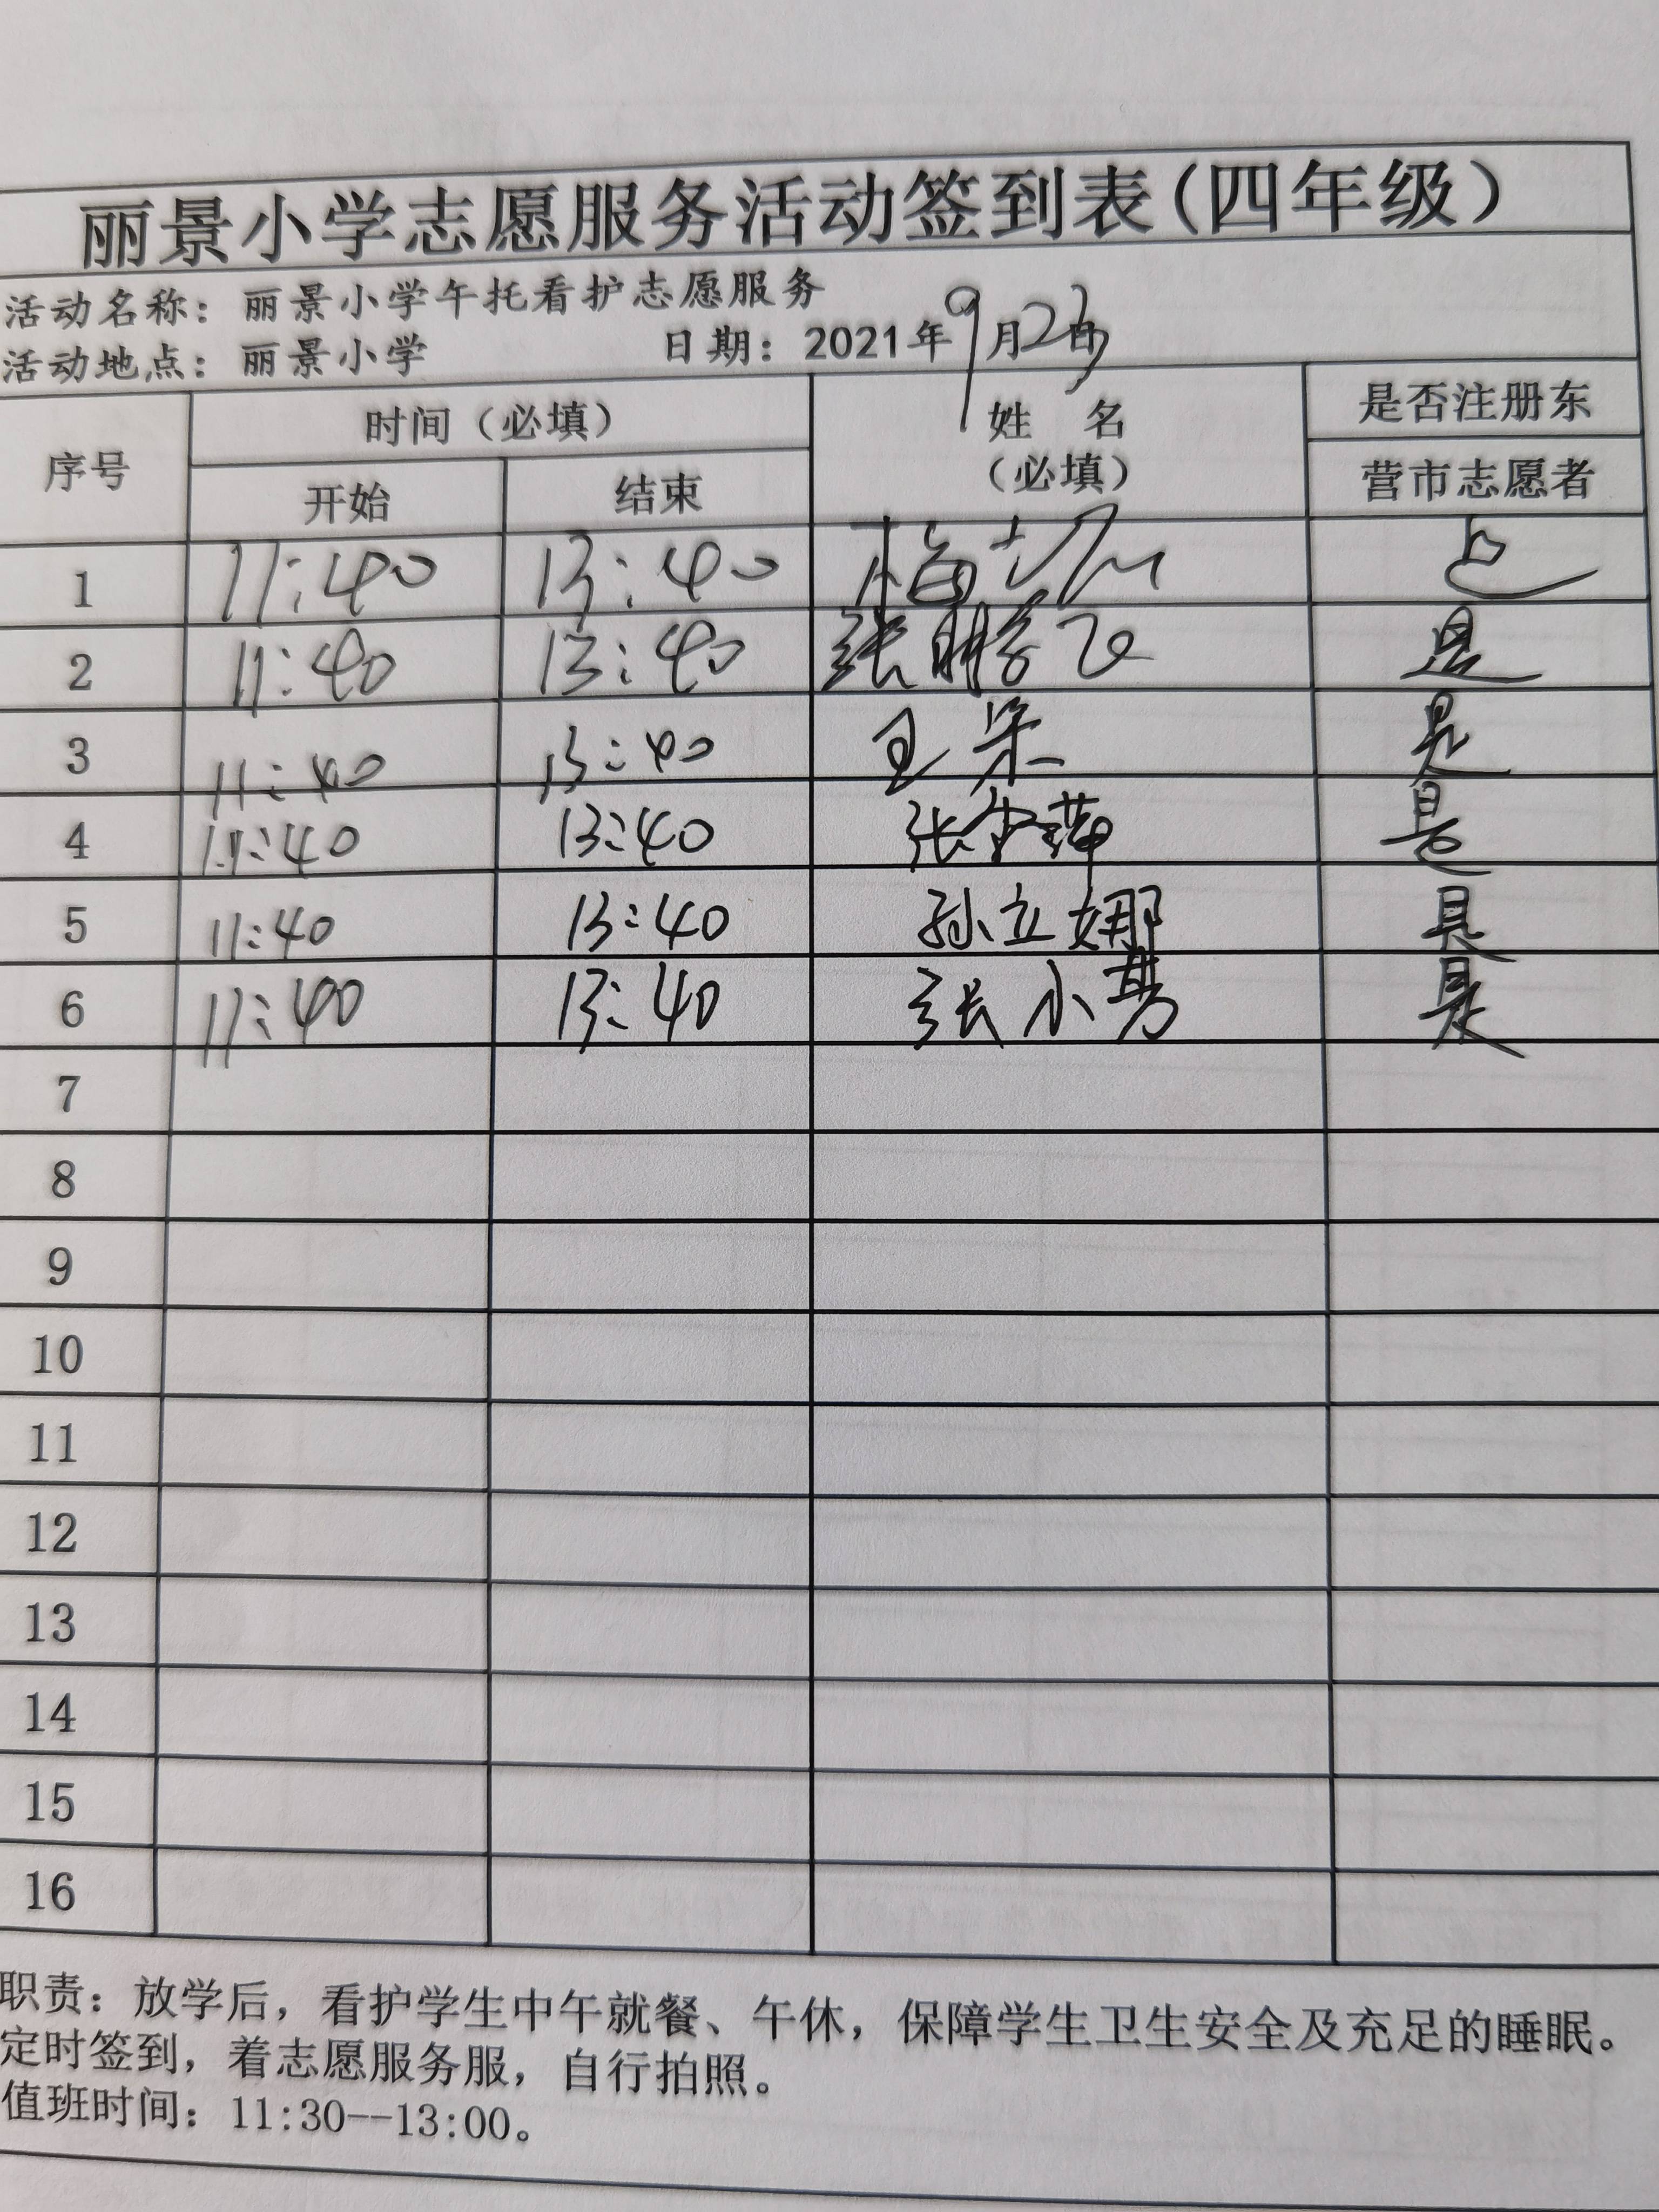 丽景小学志愿服务活动签到表(四年级)
活动名称：丽景小学午托看护志愿服务
活动地点：丽景小学 日期：2021年9月23日
序号 时间（必填） 姓 名（必填） 是否注册东营市志愿者
开始 结束
1 11:40 13:40 梅 是
2 11:40 13:40 张鹏飞 是
3 11:40 13:40 王荣 是
4 11:40 13:40 张 是
5 11:40 13:40 孙立娜 是
6 11:40 13:40 张小 是
7
8
9
10
11
12
13
14
15
16
职责：放学后，看护学生中午就餐、午休，保障学生卫生安全及充足的睡眠。
定时签到，着志愿服务服，自行拍照。
值班时间：11:30--13:00。